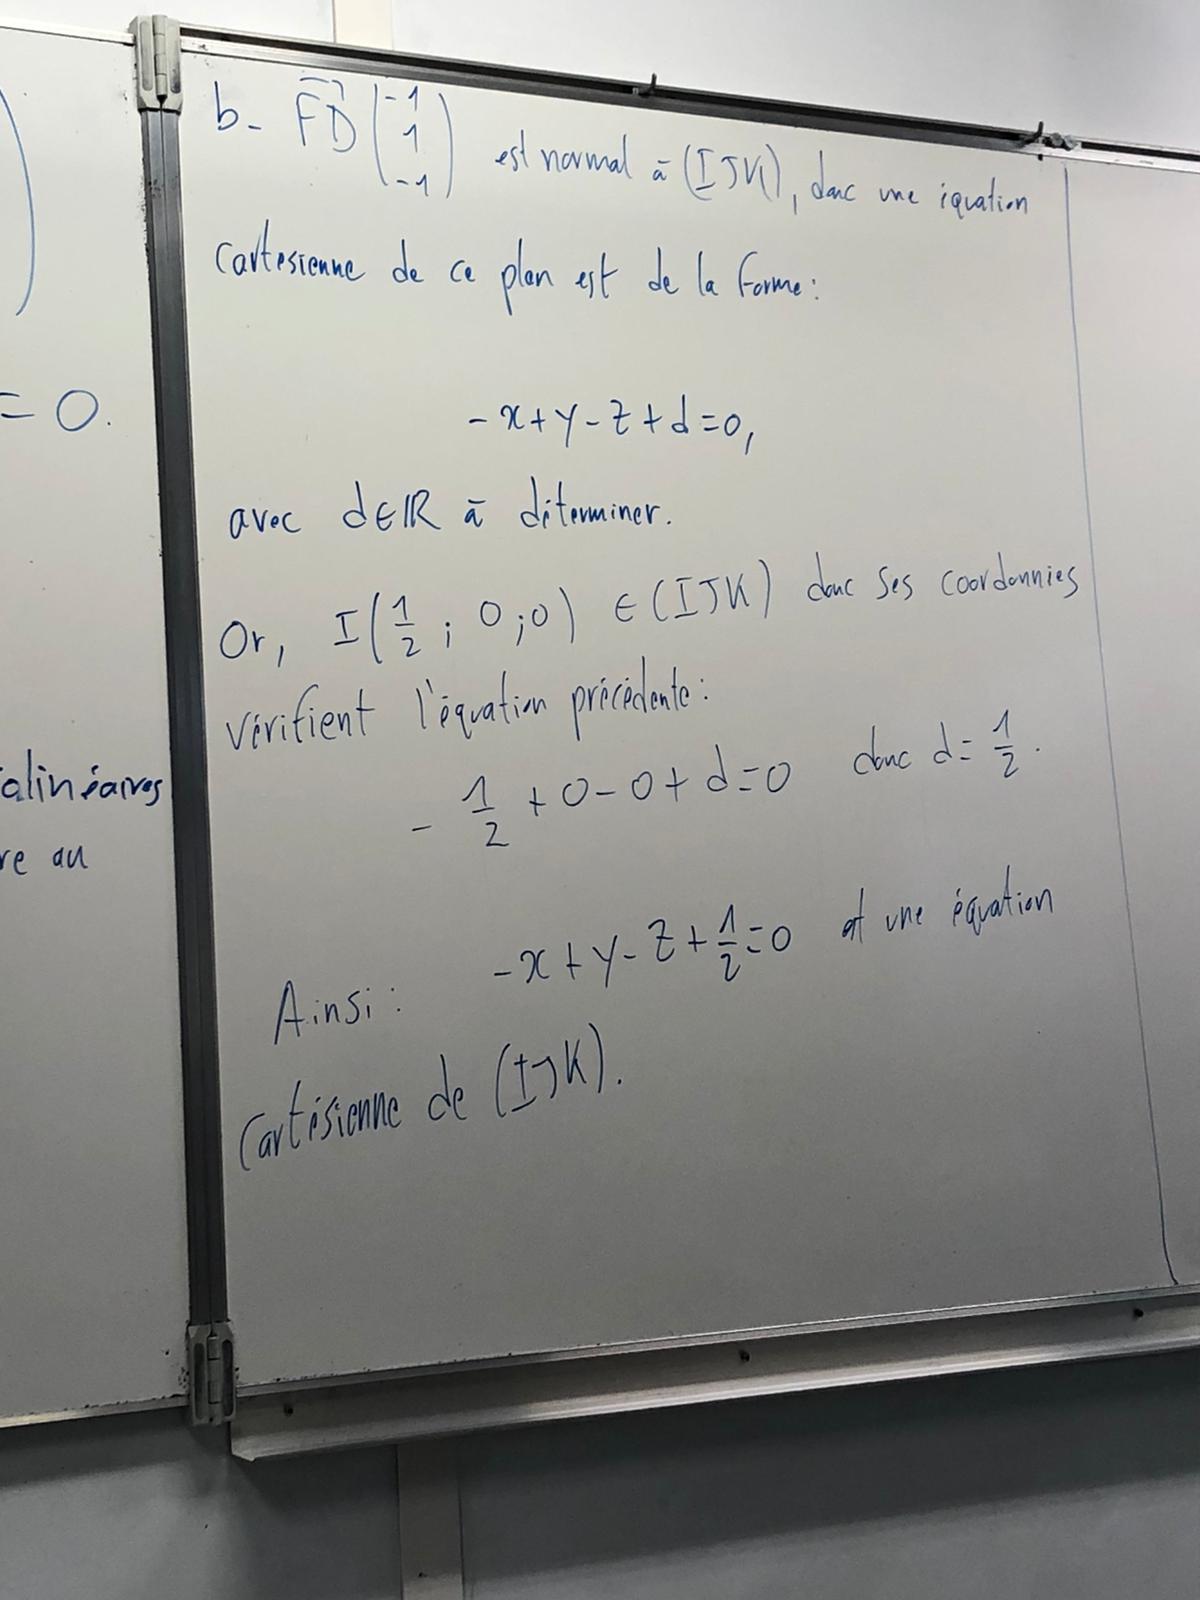 = 0.
alinéaires
re au
b- FD (-1 1 -1) est normal à (IJK), donc une équation
cartésienne de ce plan est de la forme:
-x+y-z+d=0,
avec d∈ℝ à déterminer.
Or, I(1/2 ; 0 ; 0) ∈ (IJK) donc ses coordonnées
vérifient l'équation précédente:
- 1/2 + 0 - 0 + d = 0 donc d = 1/2.
Ainsi: -x+y-z+1/2=0 et une équation
cartésienne de (IJK).